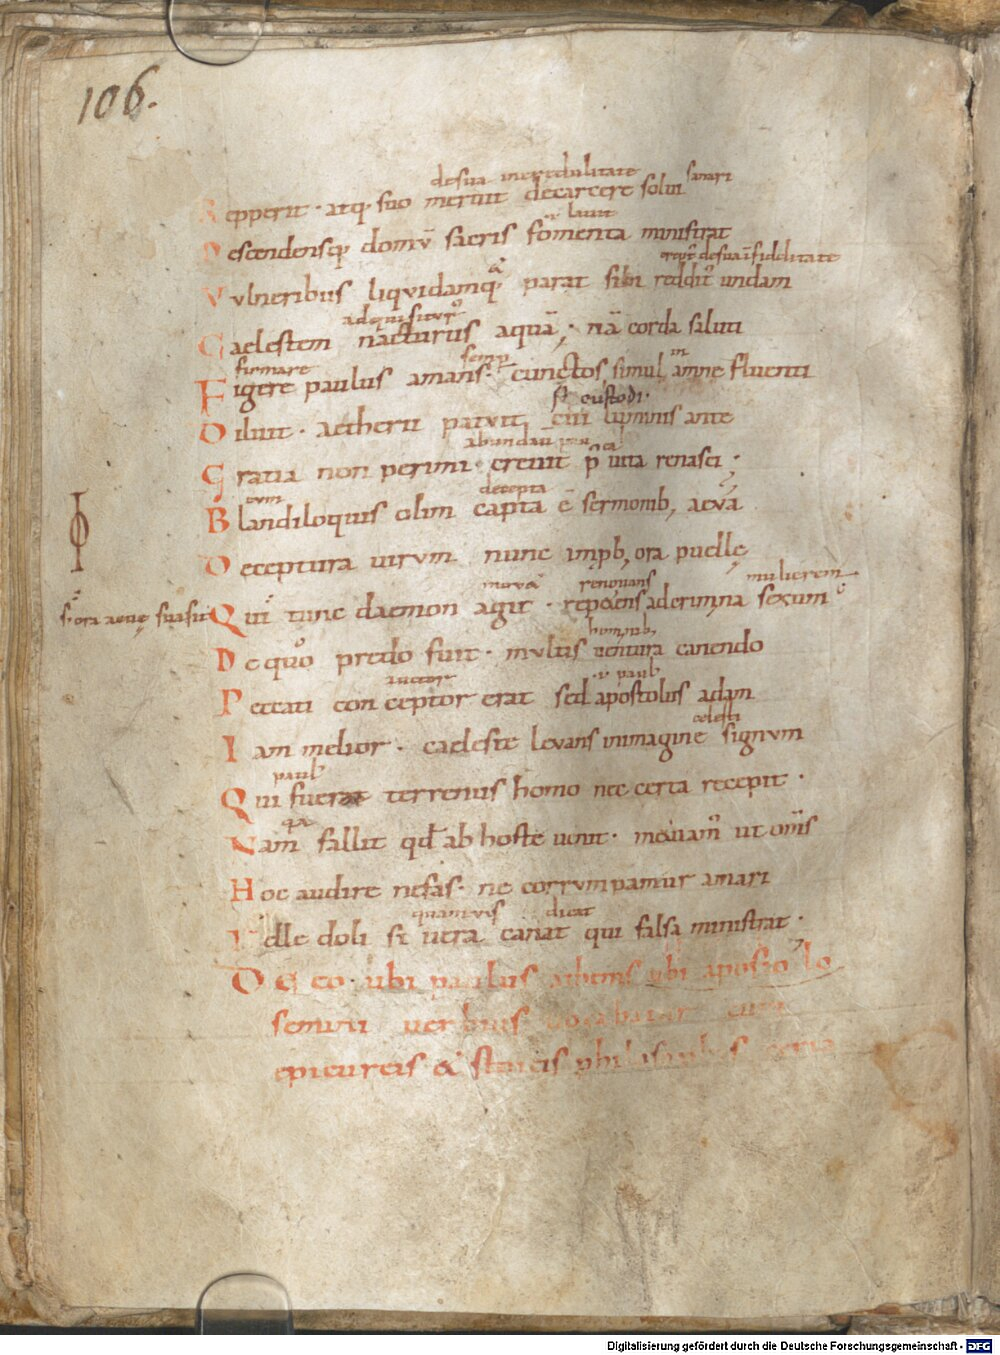 106.
desua incredulitate sanari
Repperit · atq; suo meruit decarcere solui
lauit
Descendensq; domū sacris fomenta ministrat
desua īfidelitate
Vulneribus liquidamq; parat sibi reddit undam
adquisiturꝰ
Caelestem nacturus aquā; nā corda saluti
firmare semp in
Figere paulus amans · cunctos simul amne fluenti
custodi·
Diluit · aetherii patuit cui luminis ante
Gratia non perimi · creuit p̄ uita renasci ;
cum decepta
Blandiloquiis olim capta ē sermonib; aeua
Deceptura uirum nunc impb; ora puellę
renouans mulierem
s· ora aeuę suasit Qui tunc daemon agit · repetens aderimina sexum
hominib;
De quo predo fuit · multis uentura canendo
auctor paul
Peccati conceptor erat sed apostolus adam
celesti
Iam melior · caeleste leuans inimagine signum
paulꝰ
Qui fuerat terrenus homo nec certa recepit ·
Nam fallit qđ ab hoste uenit · ut
Hoc audire nefas · ne corrumpamur amari
quamuis dicat
Felle doli si uera canat qui falsa ministrat ·
De eo · ubi paulus athenis ubi aposto lo
uerbius
epicureis & stoicis
Digitalisierung gefördert durch die Deutsche Forschungsgemeinschaft - DFG